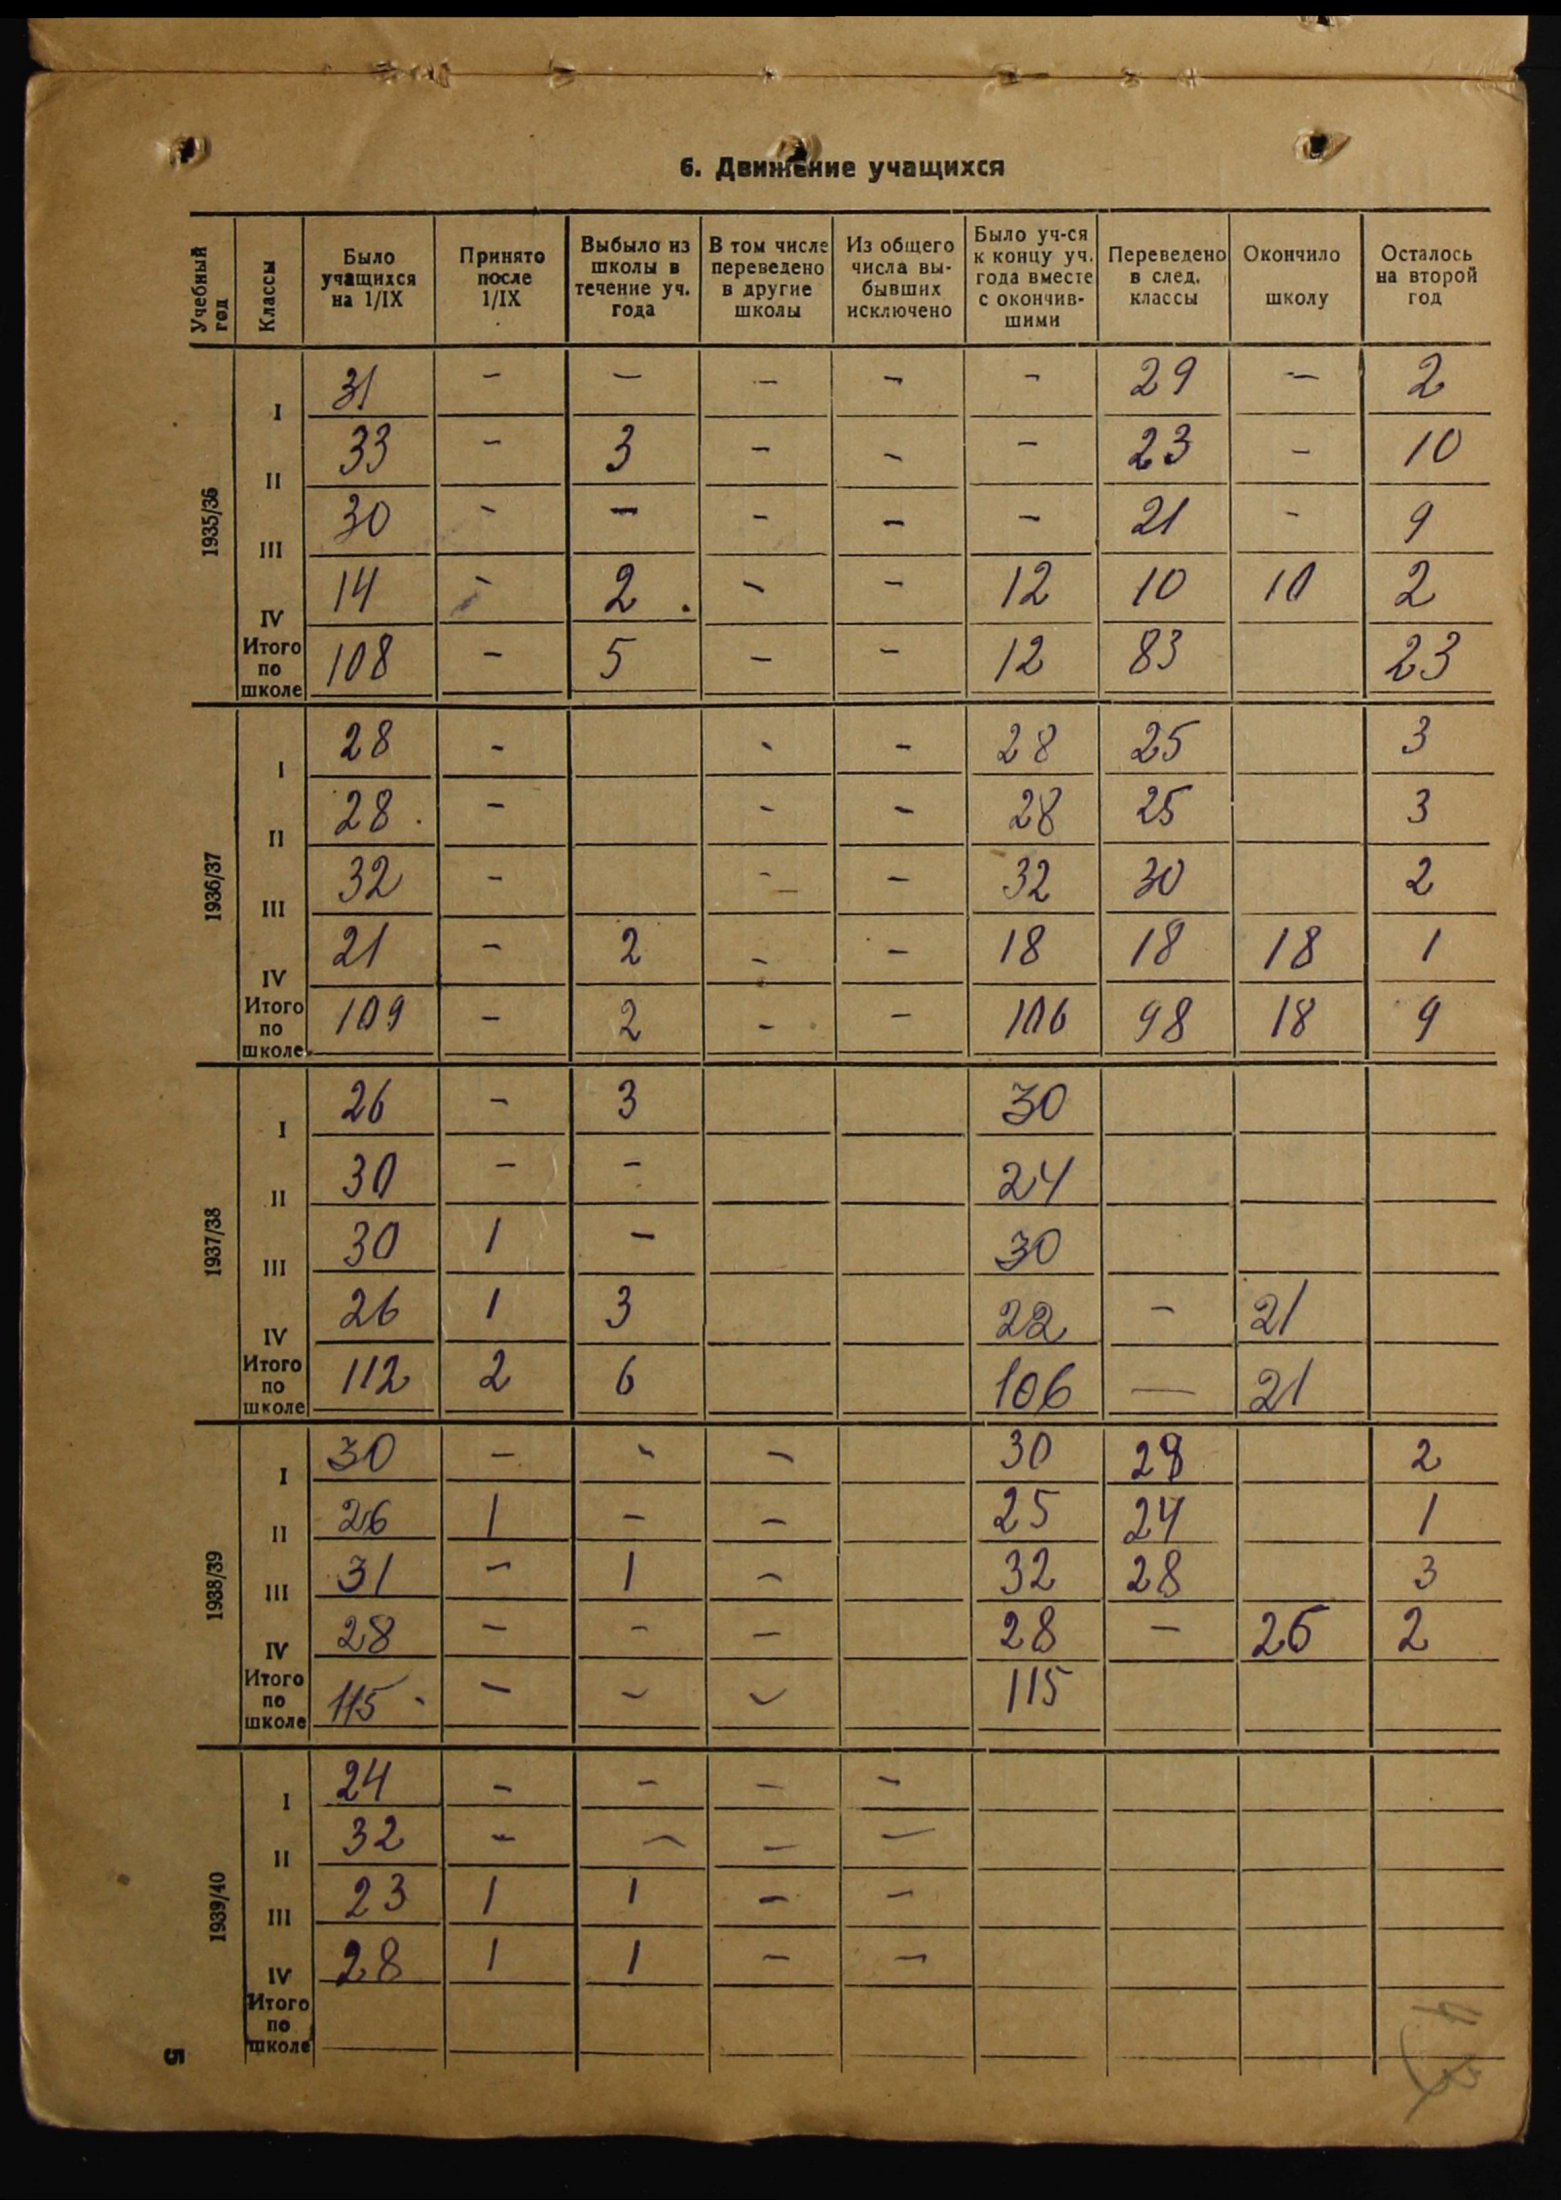 6. Движение учащихся
Учебный год | Классы | Было учащихся на 1/IX | Принято после 1/IX | Выбыло из школы в течение уч. года | В том числе переведено в другие школы | Из общего числа выбывших исключено | Было уч-ся к концу уч. года вместе с окончившими | Переведено в след. классы | Окончило школу | Осталось на второй год
1935/36
I | 31 | - | - | - | - | - | 29 | - | 2
II | 33 | - | 3 | - | - | - | 23 | - | 10
III | 30 | - | - | - | - | - | 21 | - | 9
IV | 14 | - | 2 | - | - | 12 | 10 | 10 | 2
Итого по школе | 108 | - | 5 | - | - | 12 | 83 | | 23
1936/37
I | 28 | - | | - | - | 28 | 25 | | 3
II | 28 | - | | - | - | 28 | 25 | | 3
III | 32 | - | | - | - | 32 | 30 | | 2
IV | 21 | - | 2 | - | - | 18 | 18 | 18 | 1
Итого по школе | 109 | - | 2 | - | - | 106 | 98 | 18 | 9
1937/38
I | 26 | - | 3 | | | 30 | | |
II | 30 | - | - | | | 24 | | |
III | 30 | 1 | - | | | 30 | | |
IV | 26 | 1 | 3 | | | 22 | - | 21 |
Итого по школе | 112 | 2 | 6 | | | 106 | — | 21 |
1938/39
I | 30 | - | - | - | | 30 | 28 | | 2
II | 26 | 1 | - | - | | 25 | 24 | | 1
III | 31 | - | 1 | - | | 32 | 28 | | 3
IV | 28 | - | - | - | | 28 | - | 26 | 2
Итого по школе | 115 | - | - | - | | 115 | | |
1939/40
I | 24 | - | - | - | - | | | |
II | 32 | - | - | - | - | | | |
III | 23 | 1 | 1 | - | - | | | |
IV | 28 | 1 | 1 | - | - | | | |
Итого по школе
5